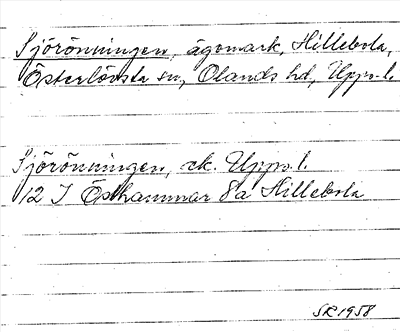 Sjörönningen, ägomark, Hillebola,
Österlövsta sn, Olands hd, Upps. l.
Sjörönningen, ek. Upps. l.
12 I Östhammar 8a Hillebola
SR 1958